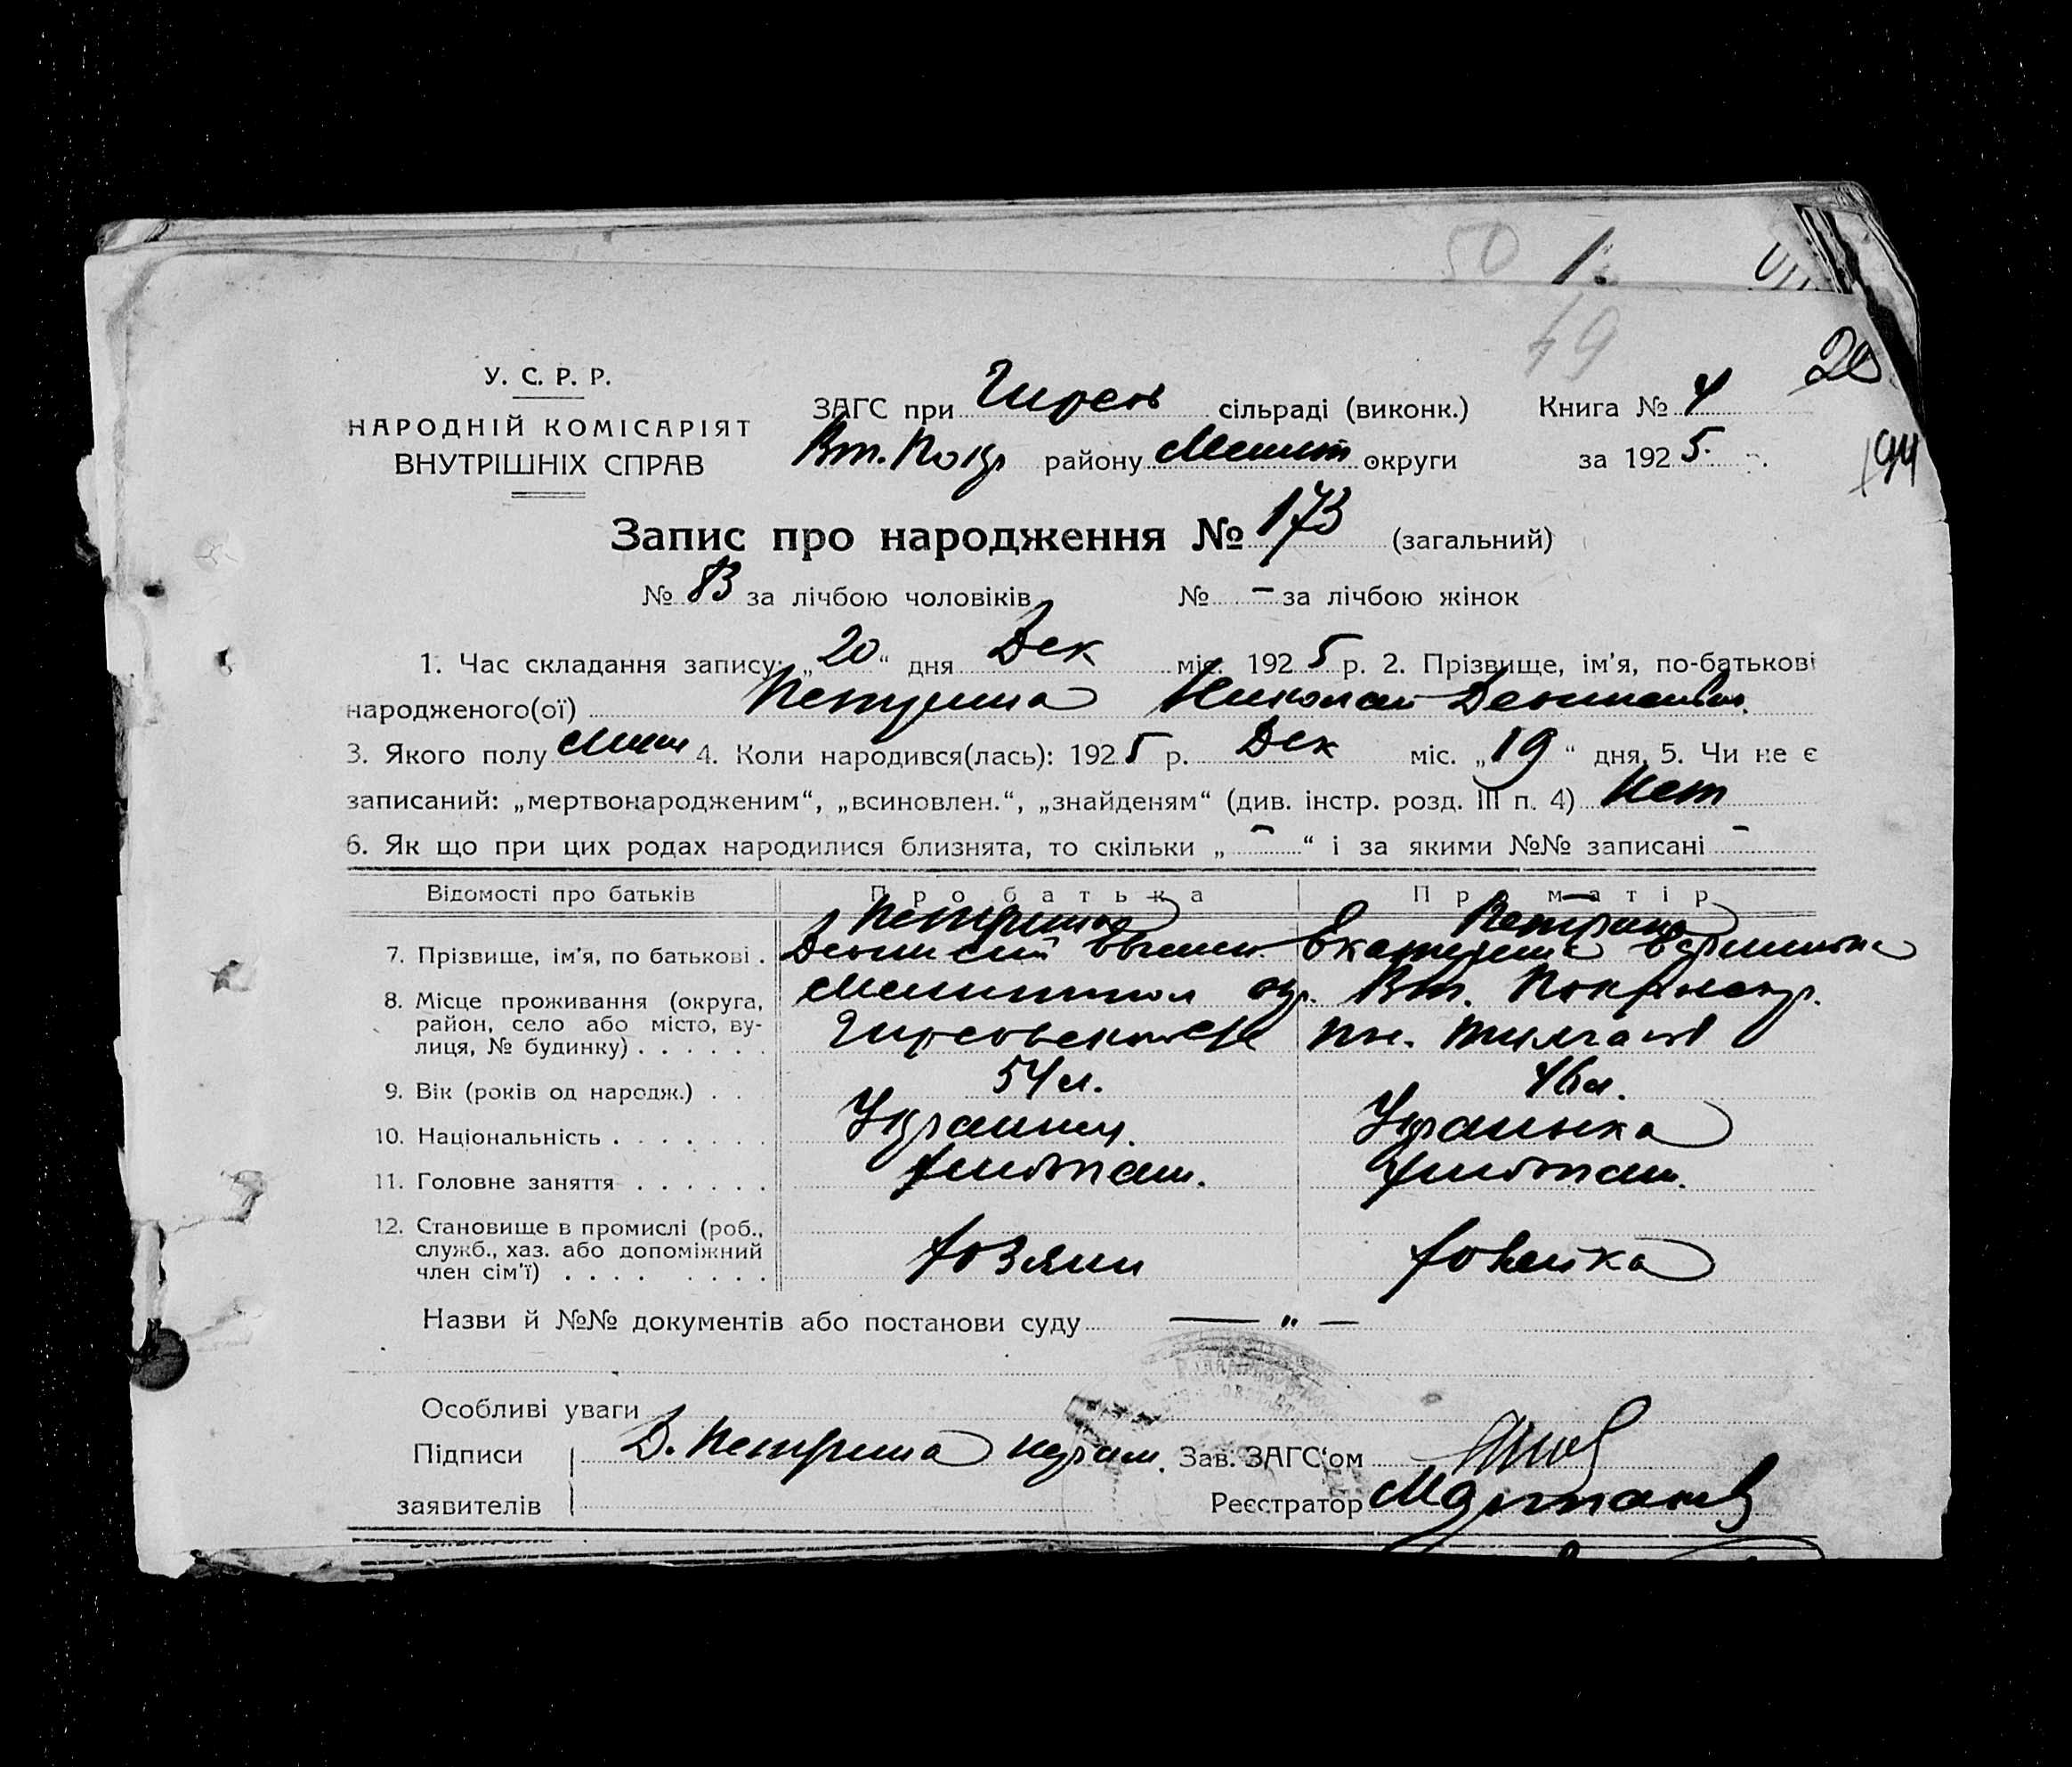 50 1.
49
20
У. С. Р. Р.
НАРОДНІЙ КОМІСАРІЯТ
ВНУТРІШНІХ СПРАВ
ЗАГС при Гирсов сільраді (виконк.) Книга № 4
Вт. Покр району Мелит округи за 1925. р.
194
Запис про народження № 173 (загальний)
№ 83 за лічбою чоловіків № – за лічбою жінок
1. Час складання запису: „20“ дня Дек міс. 1925 р. 2. Прізвище, ім'я, по-батькові
народженого(ої) Петрина Николай
3. Якого полу 4. Коли народився(лась): 1925 р. Дек міс. „19“ дня, 5. Чи не є
записаний: „мертвонародженим“, „всиновлен.“, „знайденям“ (див. інстр. розд. III п. 4) Нет
6. Як що при цих родах народилися близнята, то скільки „–“ і за якими №№ записані –
Відомості про батьків Про батька Про матір
Петрина Петрина
7. Прізвище, ім'я, по батькові . Екатерина
8. Місце проживання (округа, Мелитопол окр. Вт. Покр
район, село або місто, ву-
лиця, № будинку) . . . . . . Гирсовск
9. Вік (років од народж.) . . 54 л. 46 л.
10. Національність . . . . . . . Украинец. Украинка
11. Головне заняття . . . . . . хлебопаш. хлебопаш.
12. Становище в промислі (роб.,
служб., хаз. або допоміжний
член сім'ї) . . . . . . . . хозяин хозяйка
Назви й №№ документів або постанови суду — „ —
Особливі уваги
Підписи Д. Петрина Зав. ЗАГС'ом
заявителів Реєстратор